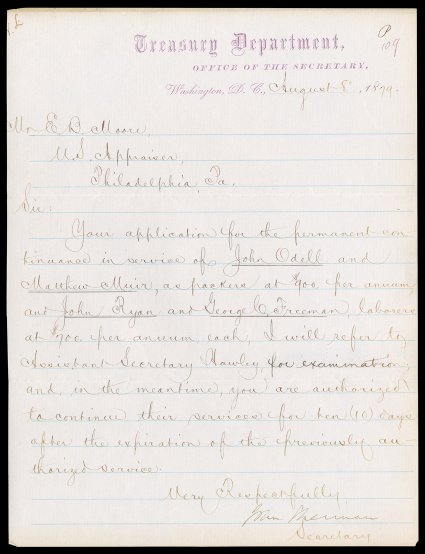 P
109
Treasury Department,
OFFICE OF THE SECRETARY,
Washington, D. C., August 8, 1879.
Mr. E. B. Moore,
U. S. Appraiser,
Philadelphia, Pa.
Sir:
Your application for the permanent con-
tinuance in service of John Odell and
Matthew Muir, as packers at $900 per annum,
and John Ryan and George C. Freeman, laborers
at $700 per annum each, I will refer to
Assistant Secretary Hawley, for examination,
and, in the meantime, you are authorized
to continue their services for ten (10) days
after the expiration of the previously au-
thorized service.
Very Respectfully
John Sherman
Secretary